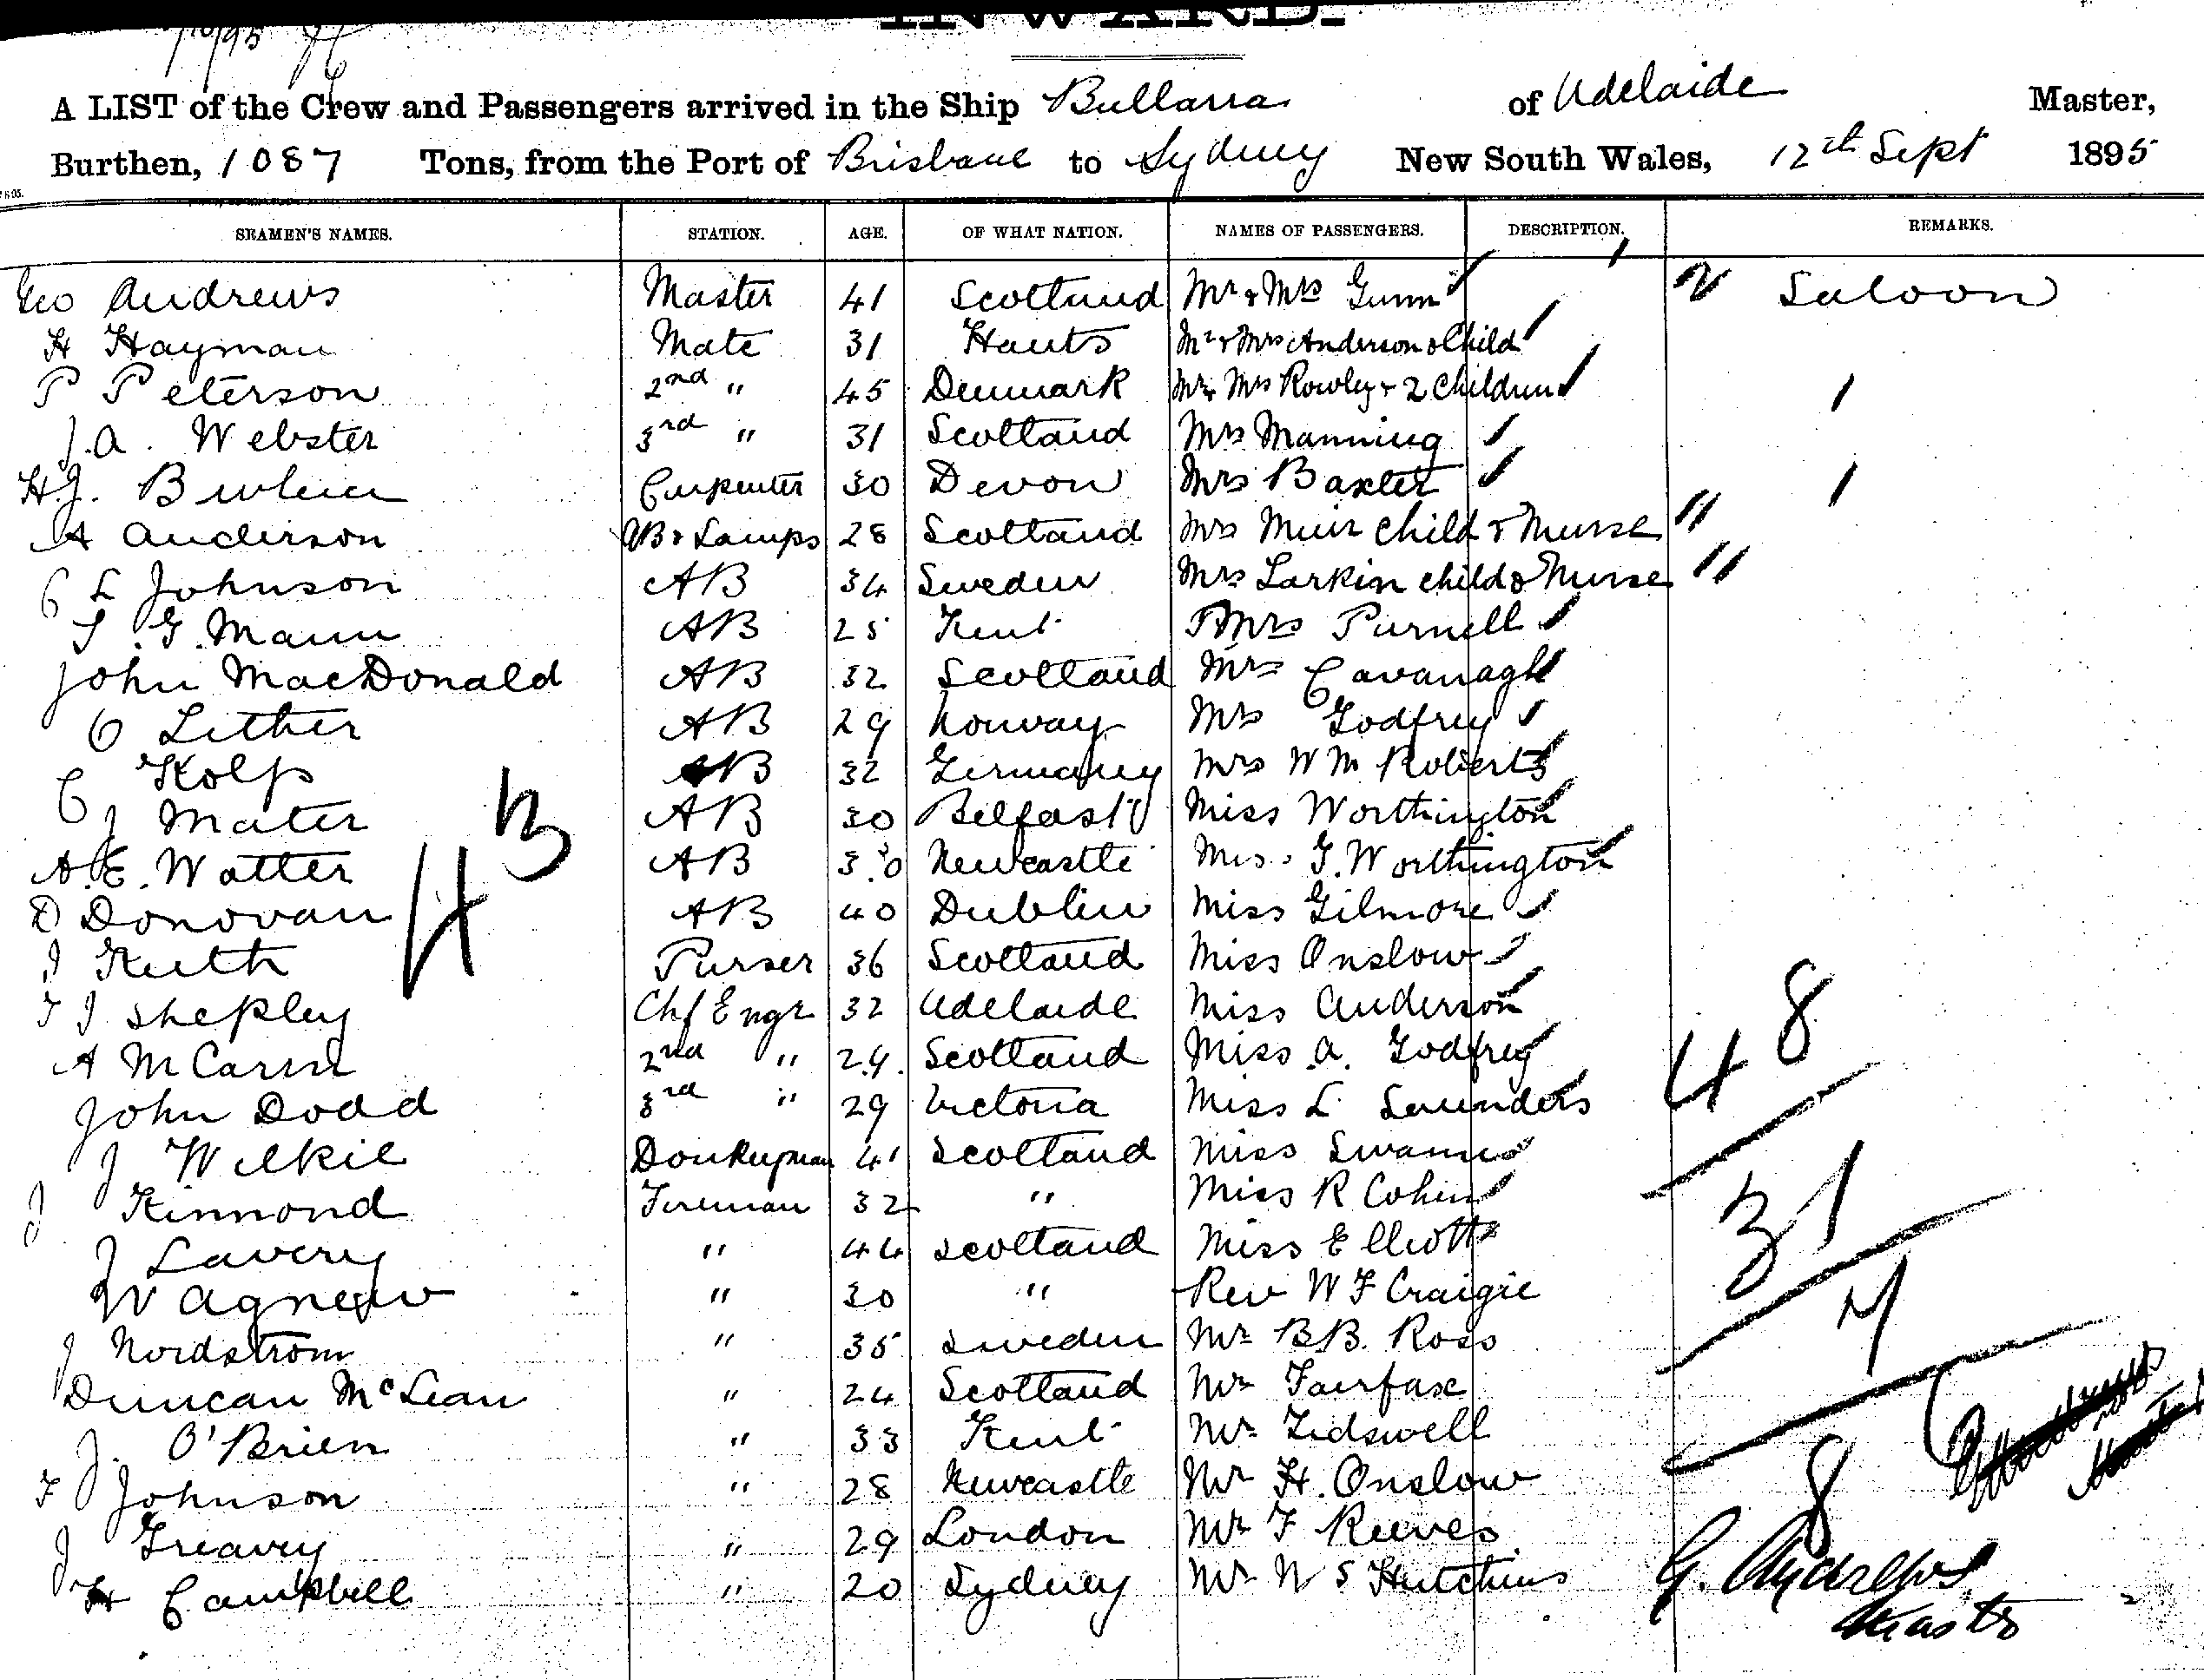 INWARD.
A LIST of the Crew and Passengers arrived in the Ship Bullarra of Adelaide Master,
Burthen, 1087 Tons, from the Port of Brisbane to Sydney New South Wales, 12th Sept 1895
SEAMEN'S NAMES. STATION. AGE. OF WHAT NATION. NAMES OF PASSENGERS. DESCRIPTION. REMARKS.
Geo Andrews Master 41 Scotland Mr & Mrs Gunn Saloon
H Hayman Mate 31 Hants Mr & Mrs Anderson & Child
P Peterson 2nd " 45 Denmark Mr & Mrs Rowley & 2 Children
J.A. Webster 3rd " 31 Scotland Mrs Manning
H.J. Carpenter 30 Devon Mrs Baxter
A Anderson AB & Lamps 28 Scotland Mrs Muir Child & Nurse
C L Johnson AB 34 Sweden Mrs Larkin child & Nurse
S.G. Mann AB 25 Kent Mrs Purnell
John MacDonald AB 32 Scotland Mrs Cavanagh
O Lither AB 29 Norway Mrs Godfrey
C Kolp AB 32 Germany Mrs W M Roberts
J Mater AB 30 Belfast Miss Worthington
A.E. Watter AB 30 Newcastle Miss G. Worthington
D Donovan AB 40 Dublin Miss Gilmore
J Keith Purser 36 Scotland Miss Onslow
T J Shepley Chf Engr 32 Adelaide Miss Anderson
A 2nd " 29 Scotland Miss A. Godfrey
John Dodd 3rd " 29 Victoria Miss L Saunders
J Wilkie Donkeyman 41 Scotland Miss
J Kinnond Fireman 32 " Miss R Cohen
J Lavery " 44 Scotland Miss Elliott
W Agnew " 30 " Rev W F Craigie
J Nordstrom " 35 Sweden Mr B B. Ross
Duncan McLean " 24 Scotland Mr Fairfax
J. O'Brien " 33 Kent Mr Tidswell
F Johnson " 28 Newcastle Mr H. Onslow
J Greavey " 29 London Mr F Reeves
H Campbell " 20 Sydney Mr W S Hutchins
43
48
31
7
8
G. Andrews
Master